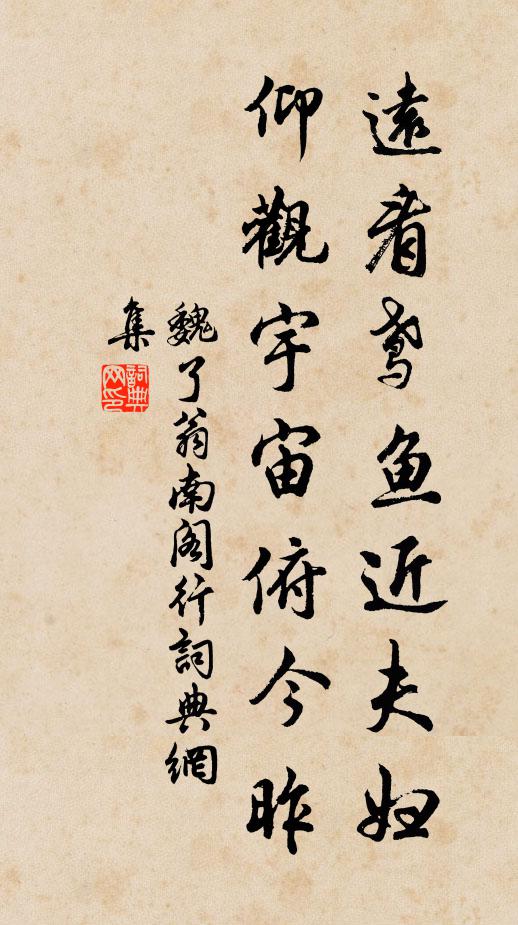 遠看鳶魚近夫婦
仰觀宇宙俯今昨
魏了翁南閣行詞典網
集
詞典
网印